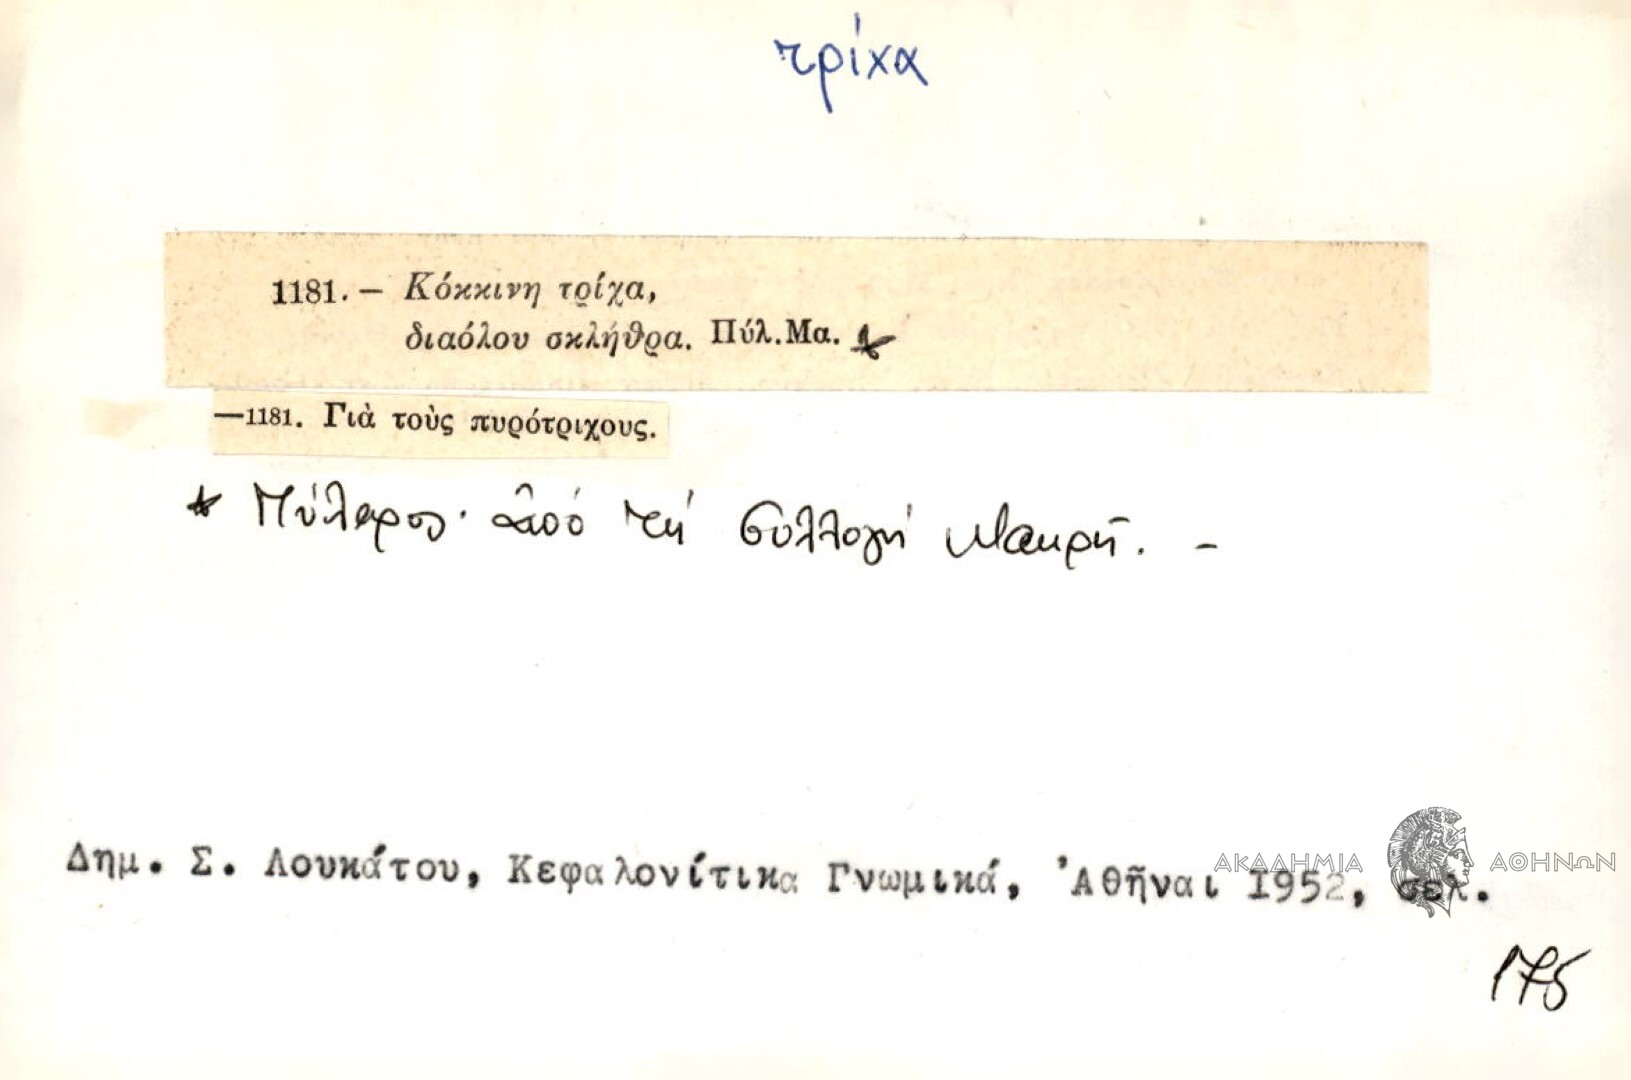 τρίχα
1181. — Κόκκινη τρίχα,
διαόλου σκλήθρα. Πύλ.Μα. *
—1181. Γιὰ τοὺς πυρότριχους.
* Πύλαρος· ἀπό τή συλλογή Μακρῆ. –
Δημ. Σ. Λουκάτου, Κεφαλονίτικα Γνωμικά, Ἀθῆναι 1952, σελ.
175
ΑΚΑΔΗΜΙΑ ΑΘΗΝΩΝ